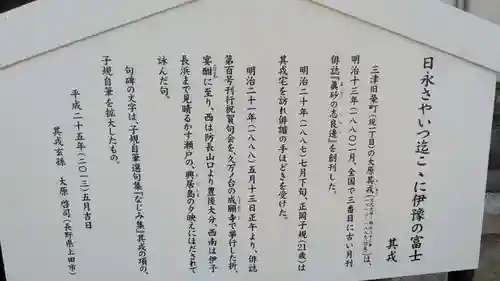 日永さやいつ迄こゝに伊豫の富士
其戎
三津旧桒町(現二丁目)の大原其戎は、
明治十三年(一八八〇)一月、全国で三番目に古い月刊
俳誌『真砂の志良邉』を創刊した。
明治二十年(一八八七)七月下旬、正岡子規(21歳)は
其戎宅を訪れ俳諧の手ほどきを受けた。
明治二十一年(一八八八)五月十三日正午より、俳誌
第百号刊行祝賀句会を、久万ノ台の成願寺で挙行した折、
宴酣に至り、西は防長山口より豊陵大分、西南は伊予
長浜まで見晴るかす瀬戸の、興居島の夕映えにほだされて
詠んだ句。
句碑の文字は、子規自筆選句集『なじみ集』其戎の項の、
子規自筆を拡大したもの。
平成二十五年(二〇一三)五月吉日
其戎玄孫 大原啓司(長野県上田市)